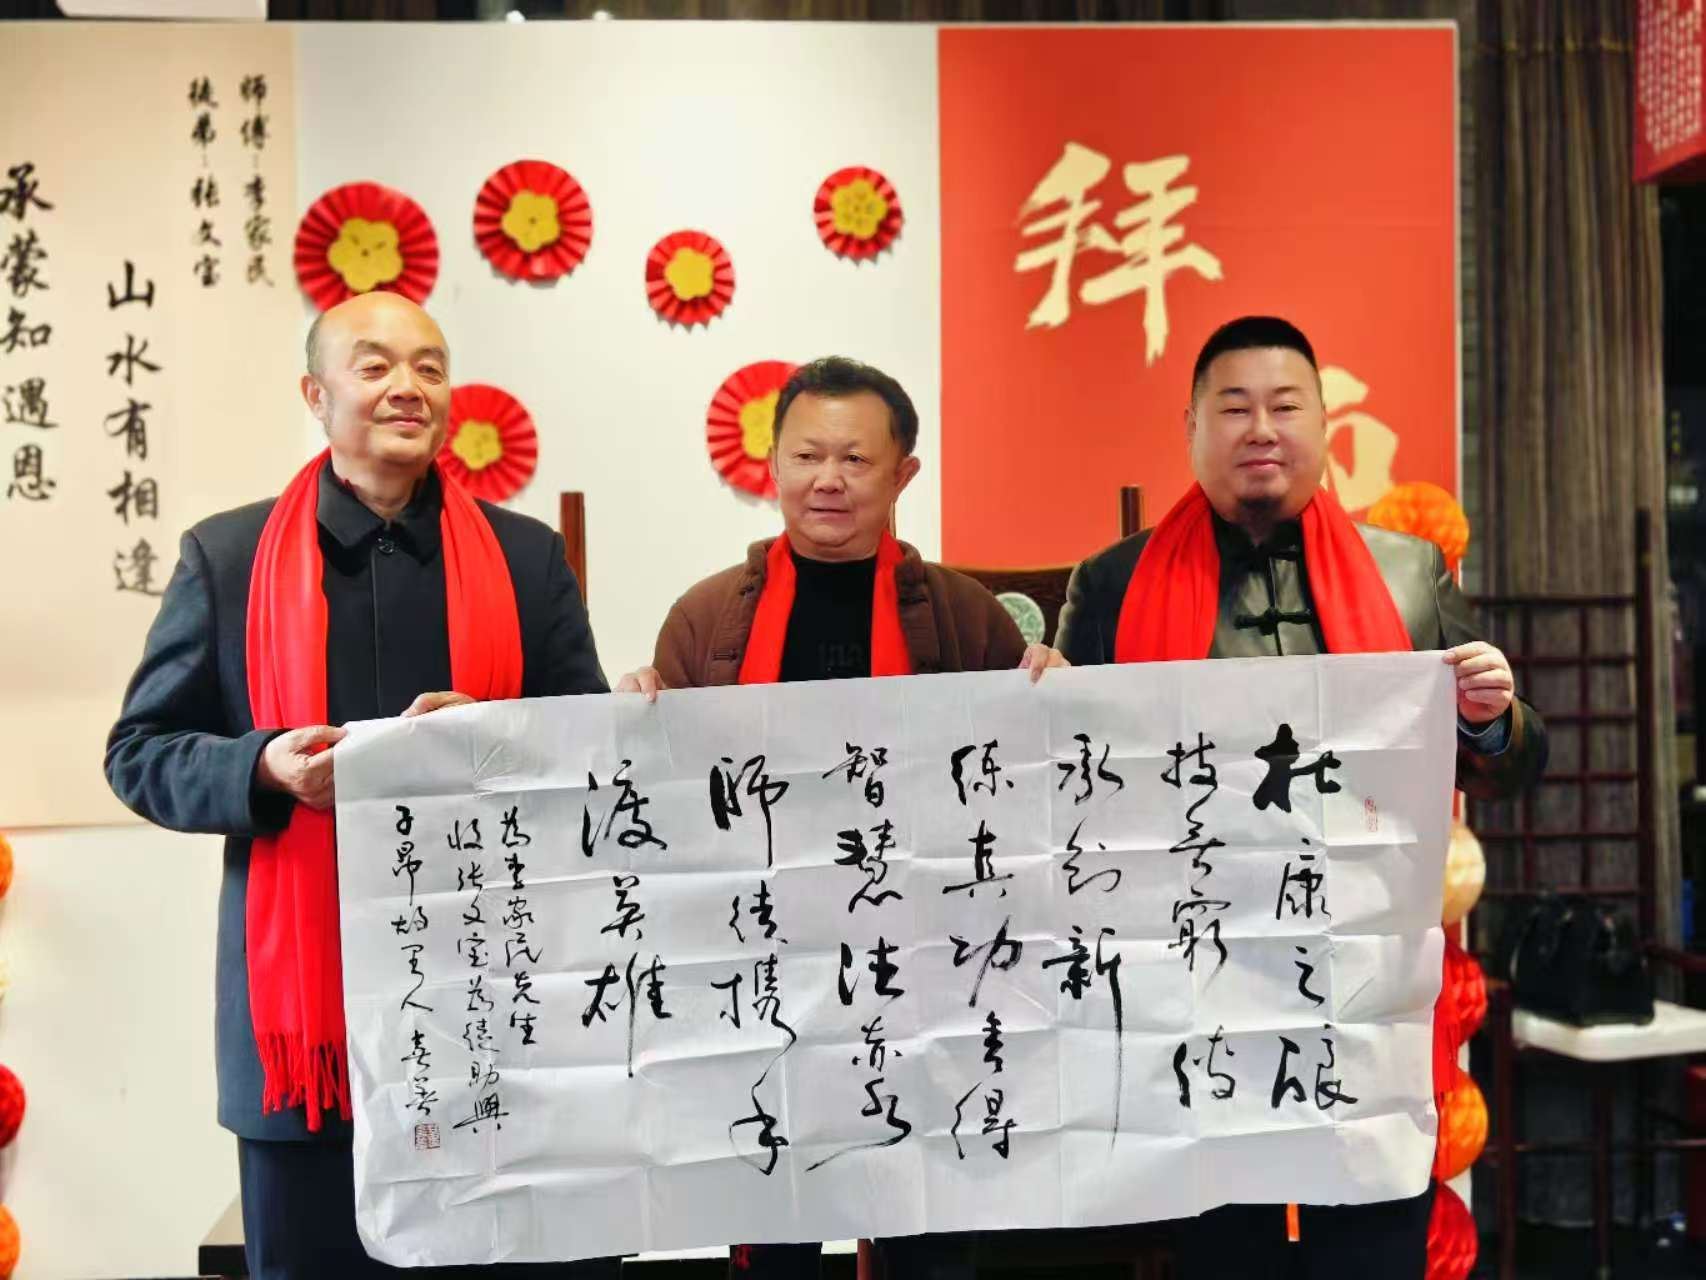 师傅：李家民
徒弟：张文宝
山水有相逢
承蒙知遇恩
拜
师
杜康之酿
技无穷 传
承创新
练真功 方得
智慧法亦
师徒携手
渡英雄
为李家民先生
收张文宝为徒助兴
子昂故里人